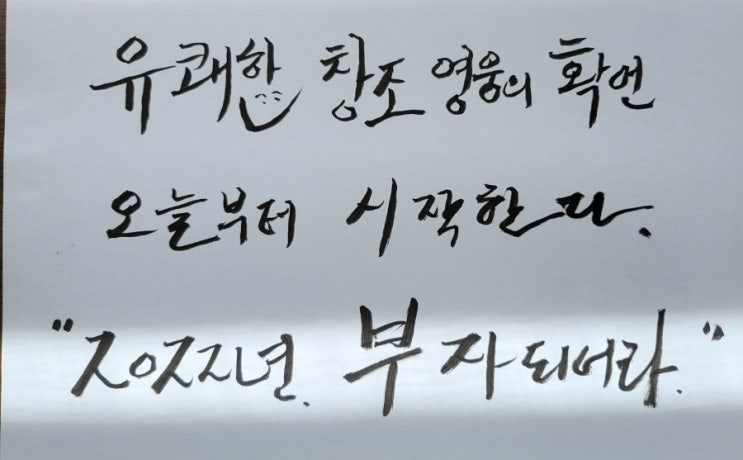 유쾌한 창조 영웅의 확언
오늘부터 시작한다.
"2022년. 부자되어라."